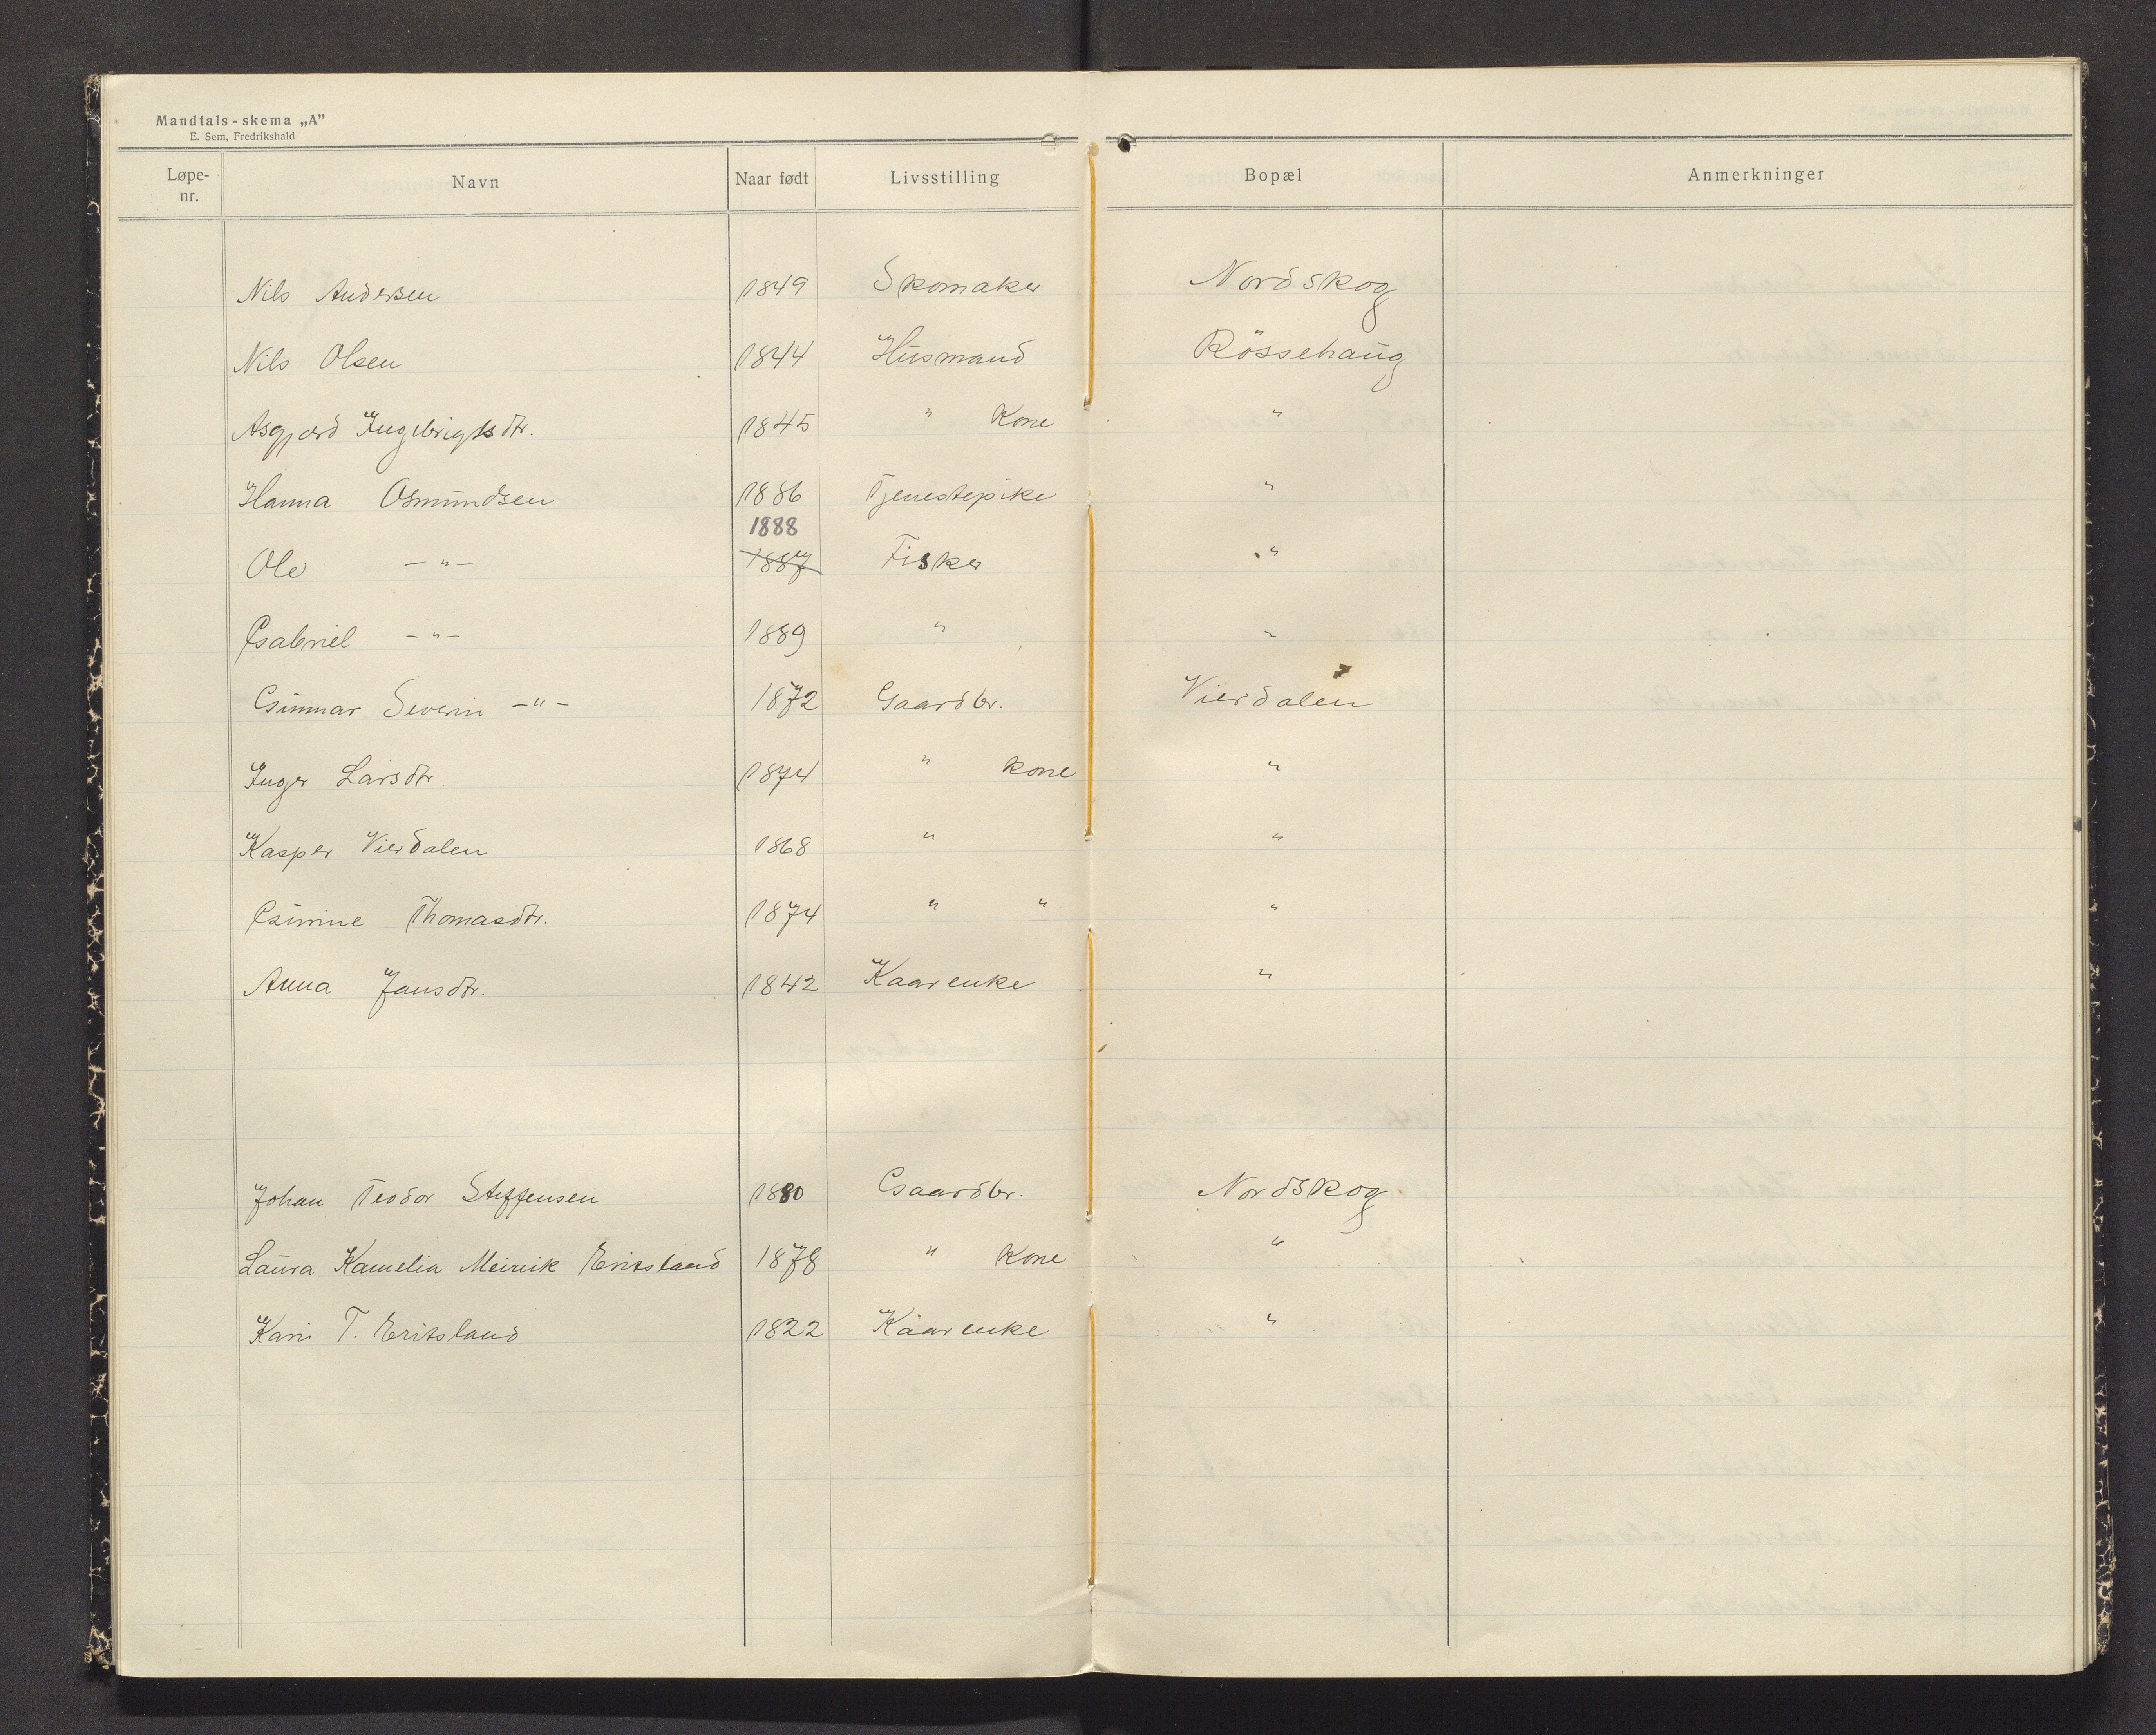 Mandtals-skema „A”
E. Sem, Fredrikshald
Løpe-nr. Navn Naar født Livsstilling Bopæl Anmerkninger
Nils Andersen 1849 Skomaker Nordskog
Nils Olsen 1844 Husmand Rössehaug
Asgjærd Ingebrigtsdtr. 1845 " Kone "
Hanna Osmundsen 1886 Tjenestepike "
1888
Ole —"— 1887 Fisker "
Gabriel —"— 1889 " "
Gunnar Severin —"— 1872 Gaardbr. Vierdalen
Inger Larsdtr. 1874 " kone "
Kasper Vierdalen 1868 " "
Gurine Thomasdtr. 1874 " " "
Anna Jansdtr. 1842 Kaarenke "
Johan Teodor Steffensen 1880 Gaardbr. Nordskog
Laura Kamelia Meinik Eritsland 1878 " Kone "
Kari T. Eritsland 1822 Kaarenke "